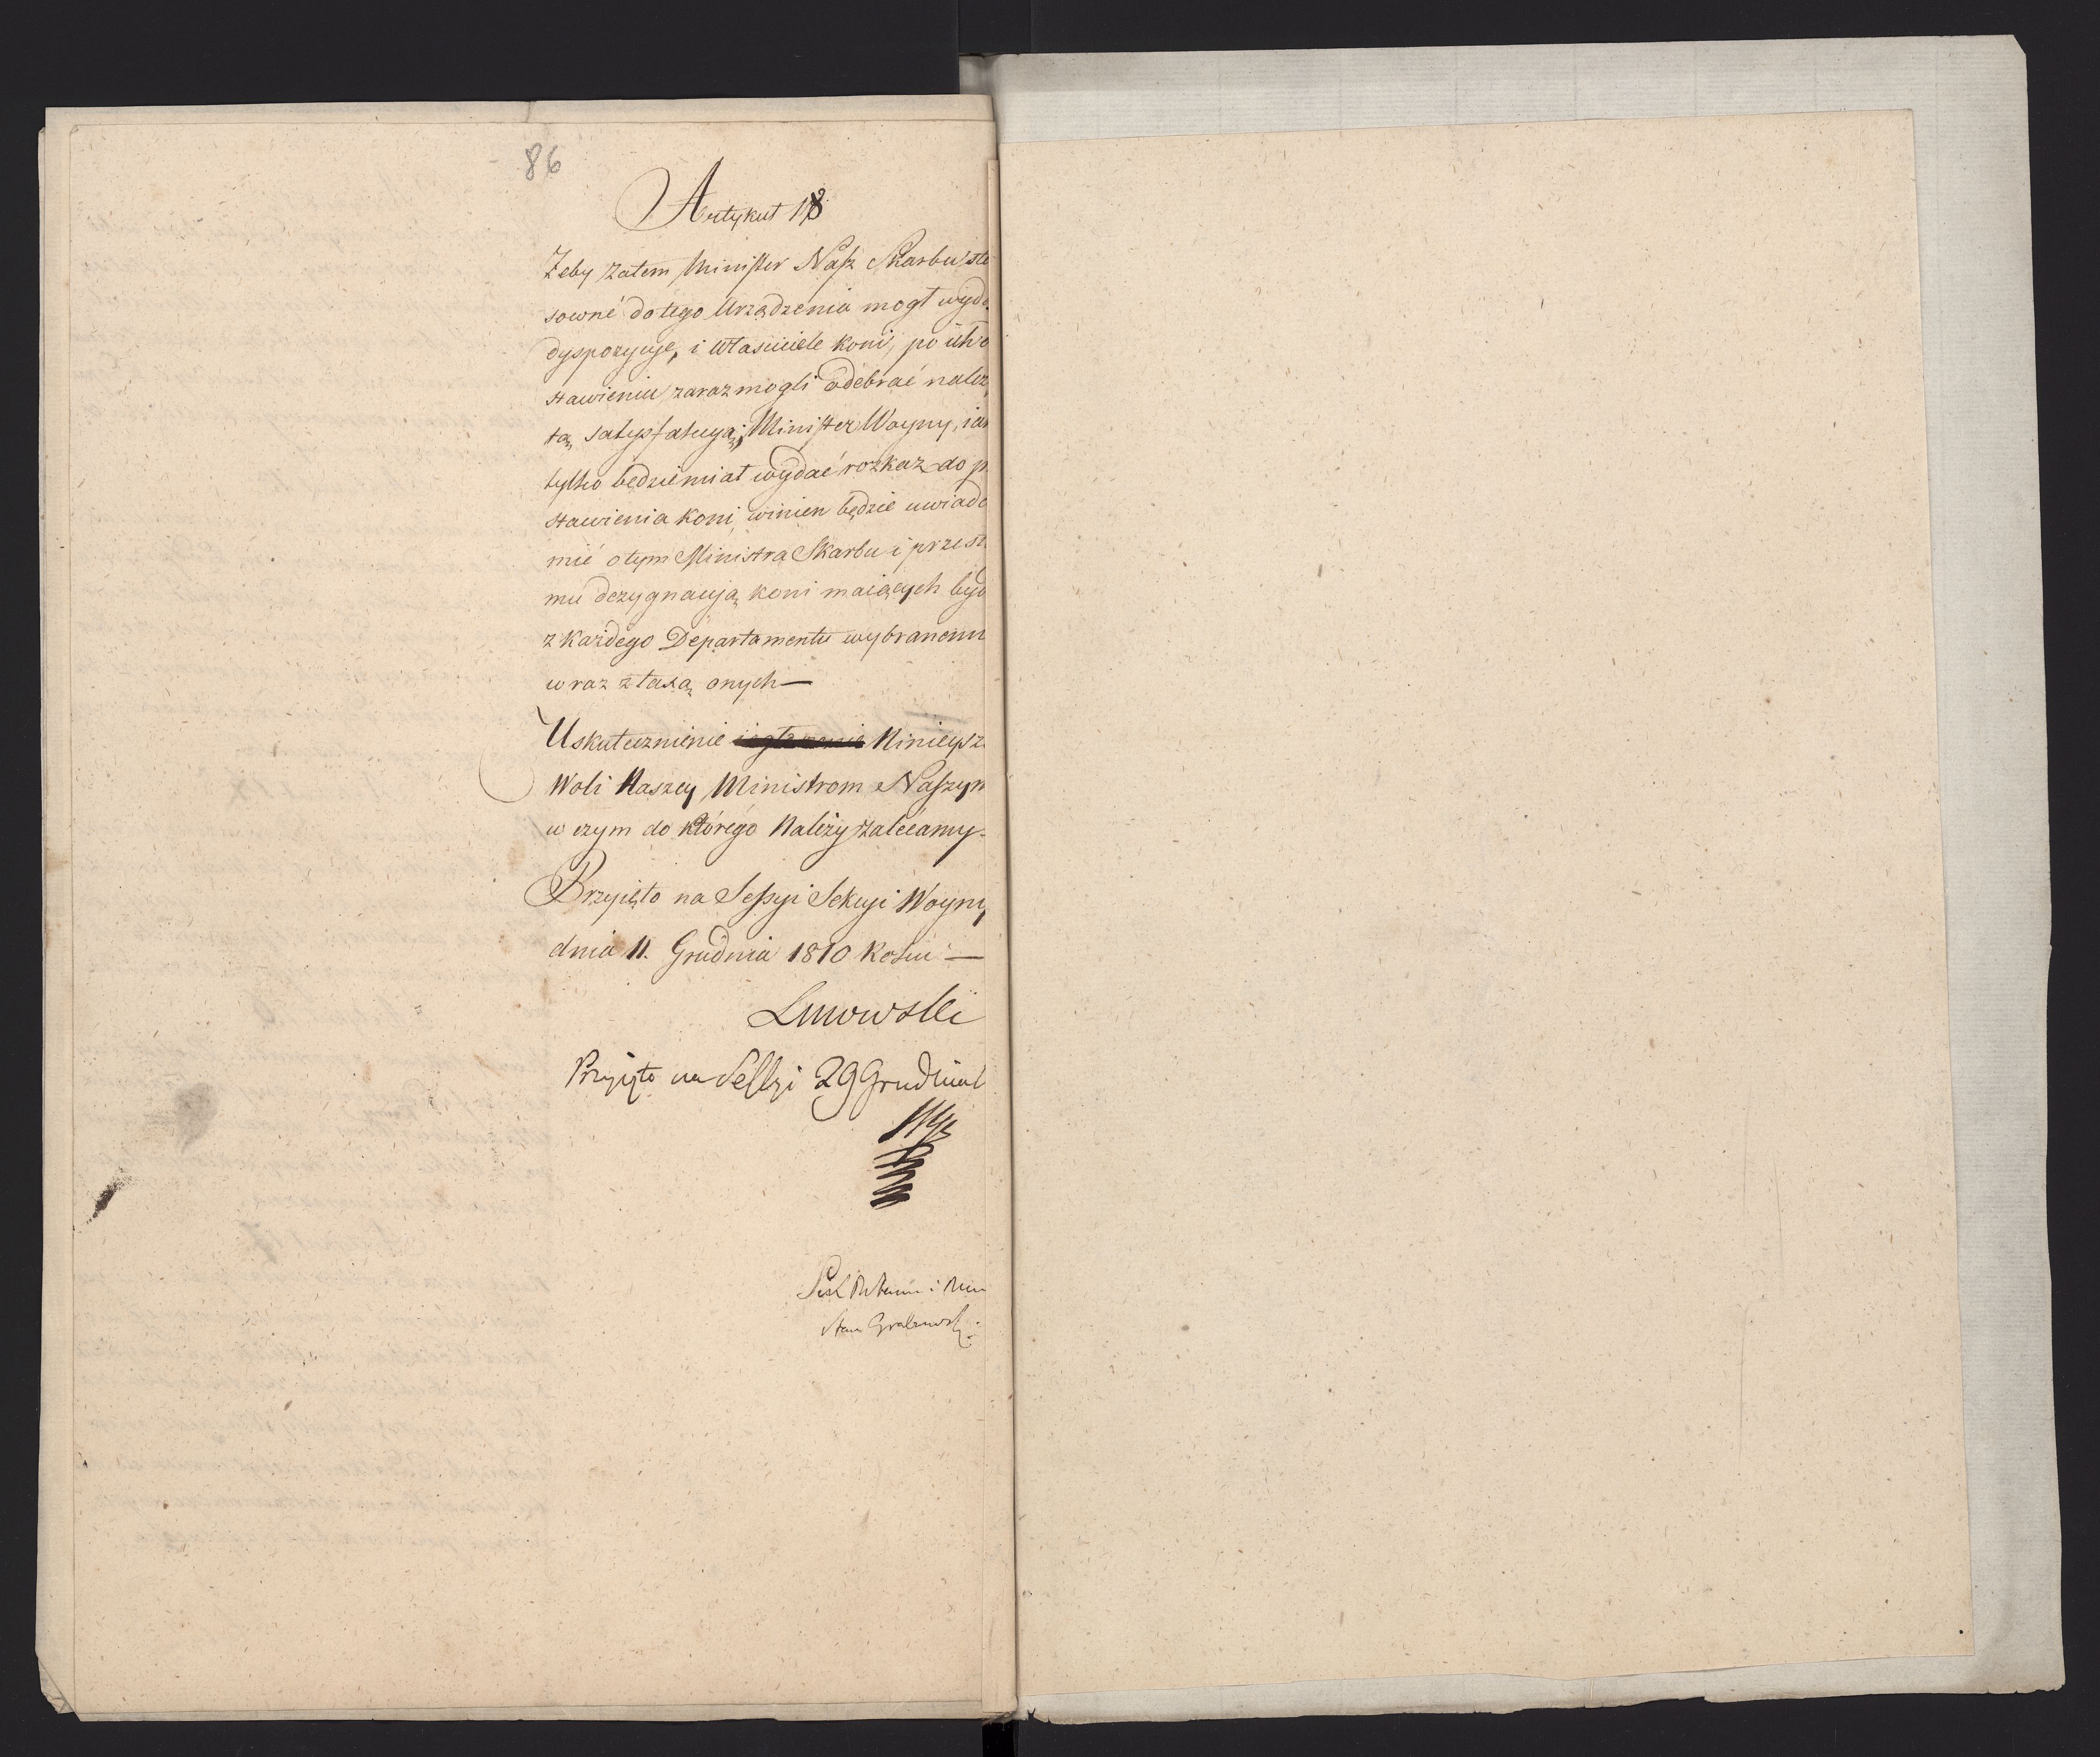 86
Artykuł 18
Zeby zatem Minister Nasz Skarbu sto
sowné do tego Urządzenia mogł wyda
dyspozycyę, i właściciele koni, po ich o
stawieniu zaraz mogli odebrać należ
tą satysfakcyą; Minister Woyny, iak
tylko będzie miał wydać rozkaz do p
stawienia koni, winien będzie uwiado
mić o tym Ministra Skarbu i przesł
mu dezygnacyą koni maiących byd
z każdego Departamentu wybranemi
wraz z taxą onych —
Uskutecznienie Ninieysz
Woli Naszey Ministrom Naszym
w czym do którego Należy zalecamy.
Przyięto na Sessyi Sekcyi Woyny
dnia 11. Grudnia 1810 Roku —
Linowski
Przyięto na Sessyi 29 Grudnia
Stan Grabowski